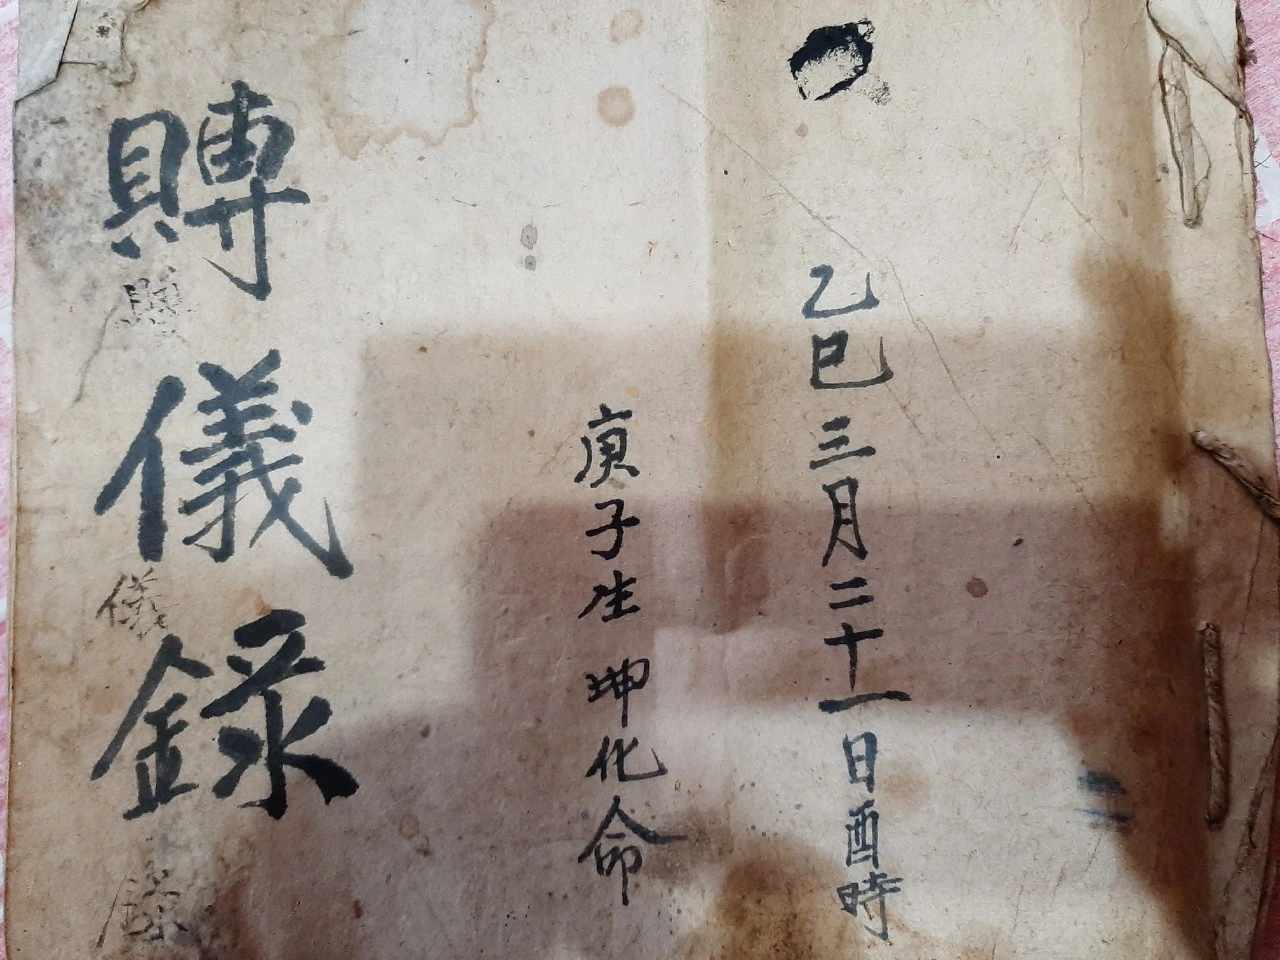 乙巳三月二十一日酉時
庚子生坤化命
賻儀錄
儀